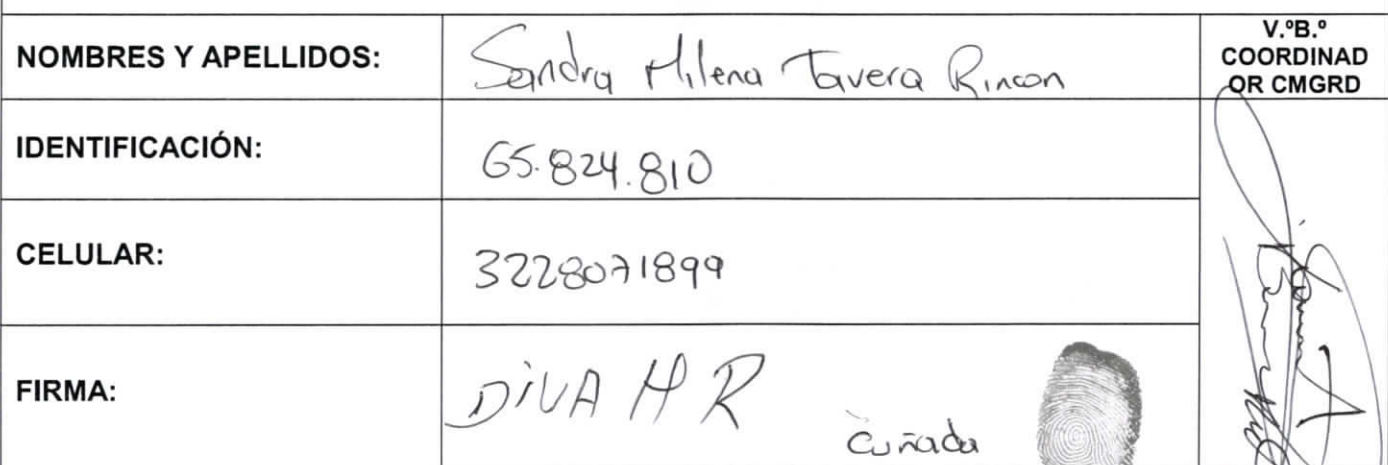 NOMBRES Y APELLIDOS: Sandra Milena Tavera Rincon
V.ºB.º
COORDINAD
OR CMGRD
IDENTIFICACIÓN: 65.824.810
CELULAR: 3228071899
FIRMA: DiVA M R
cuñada